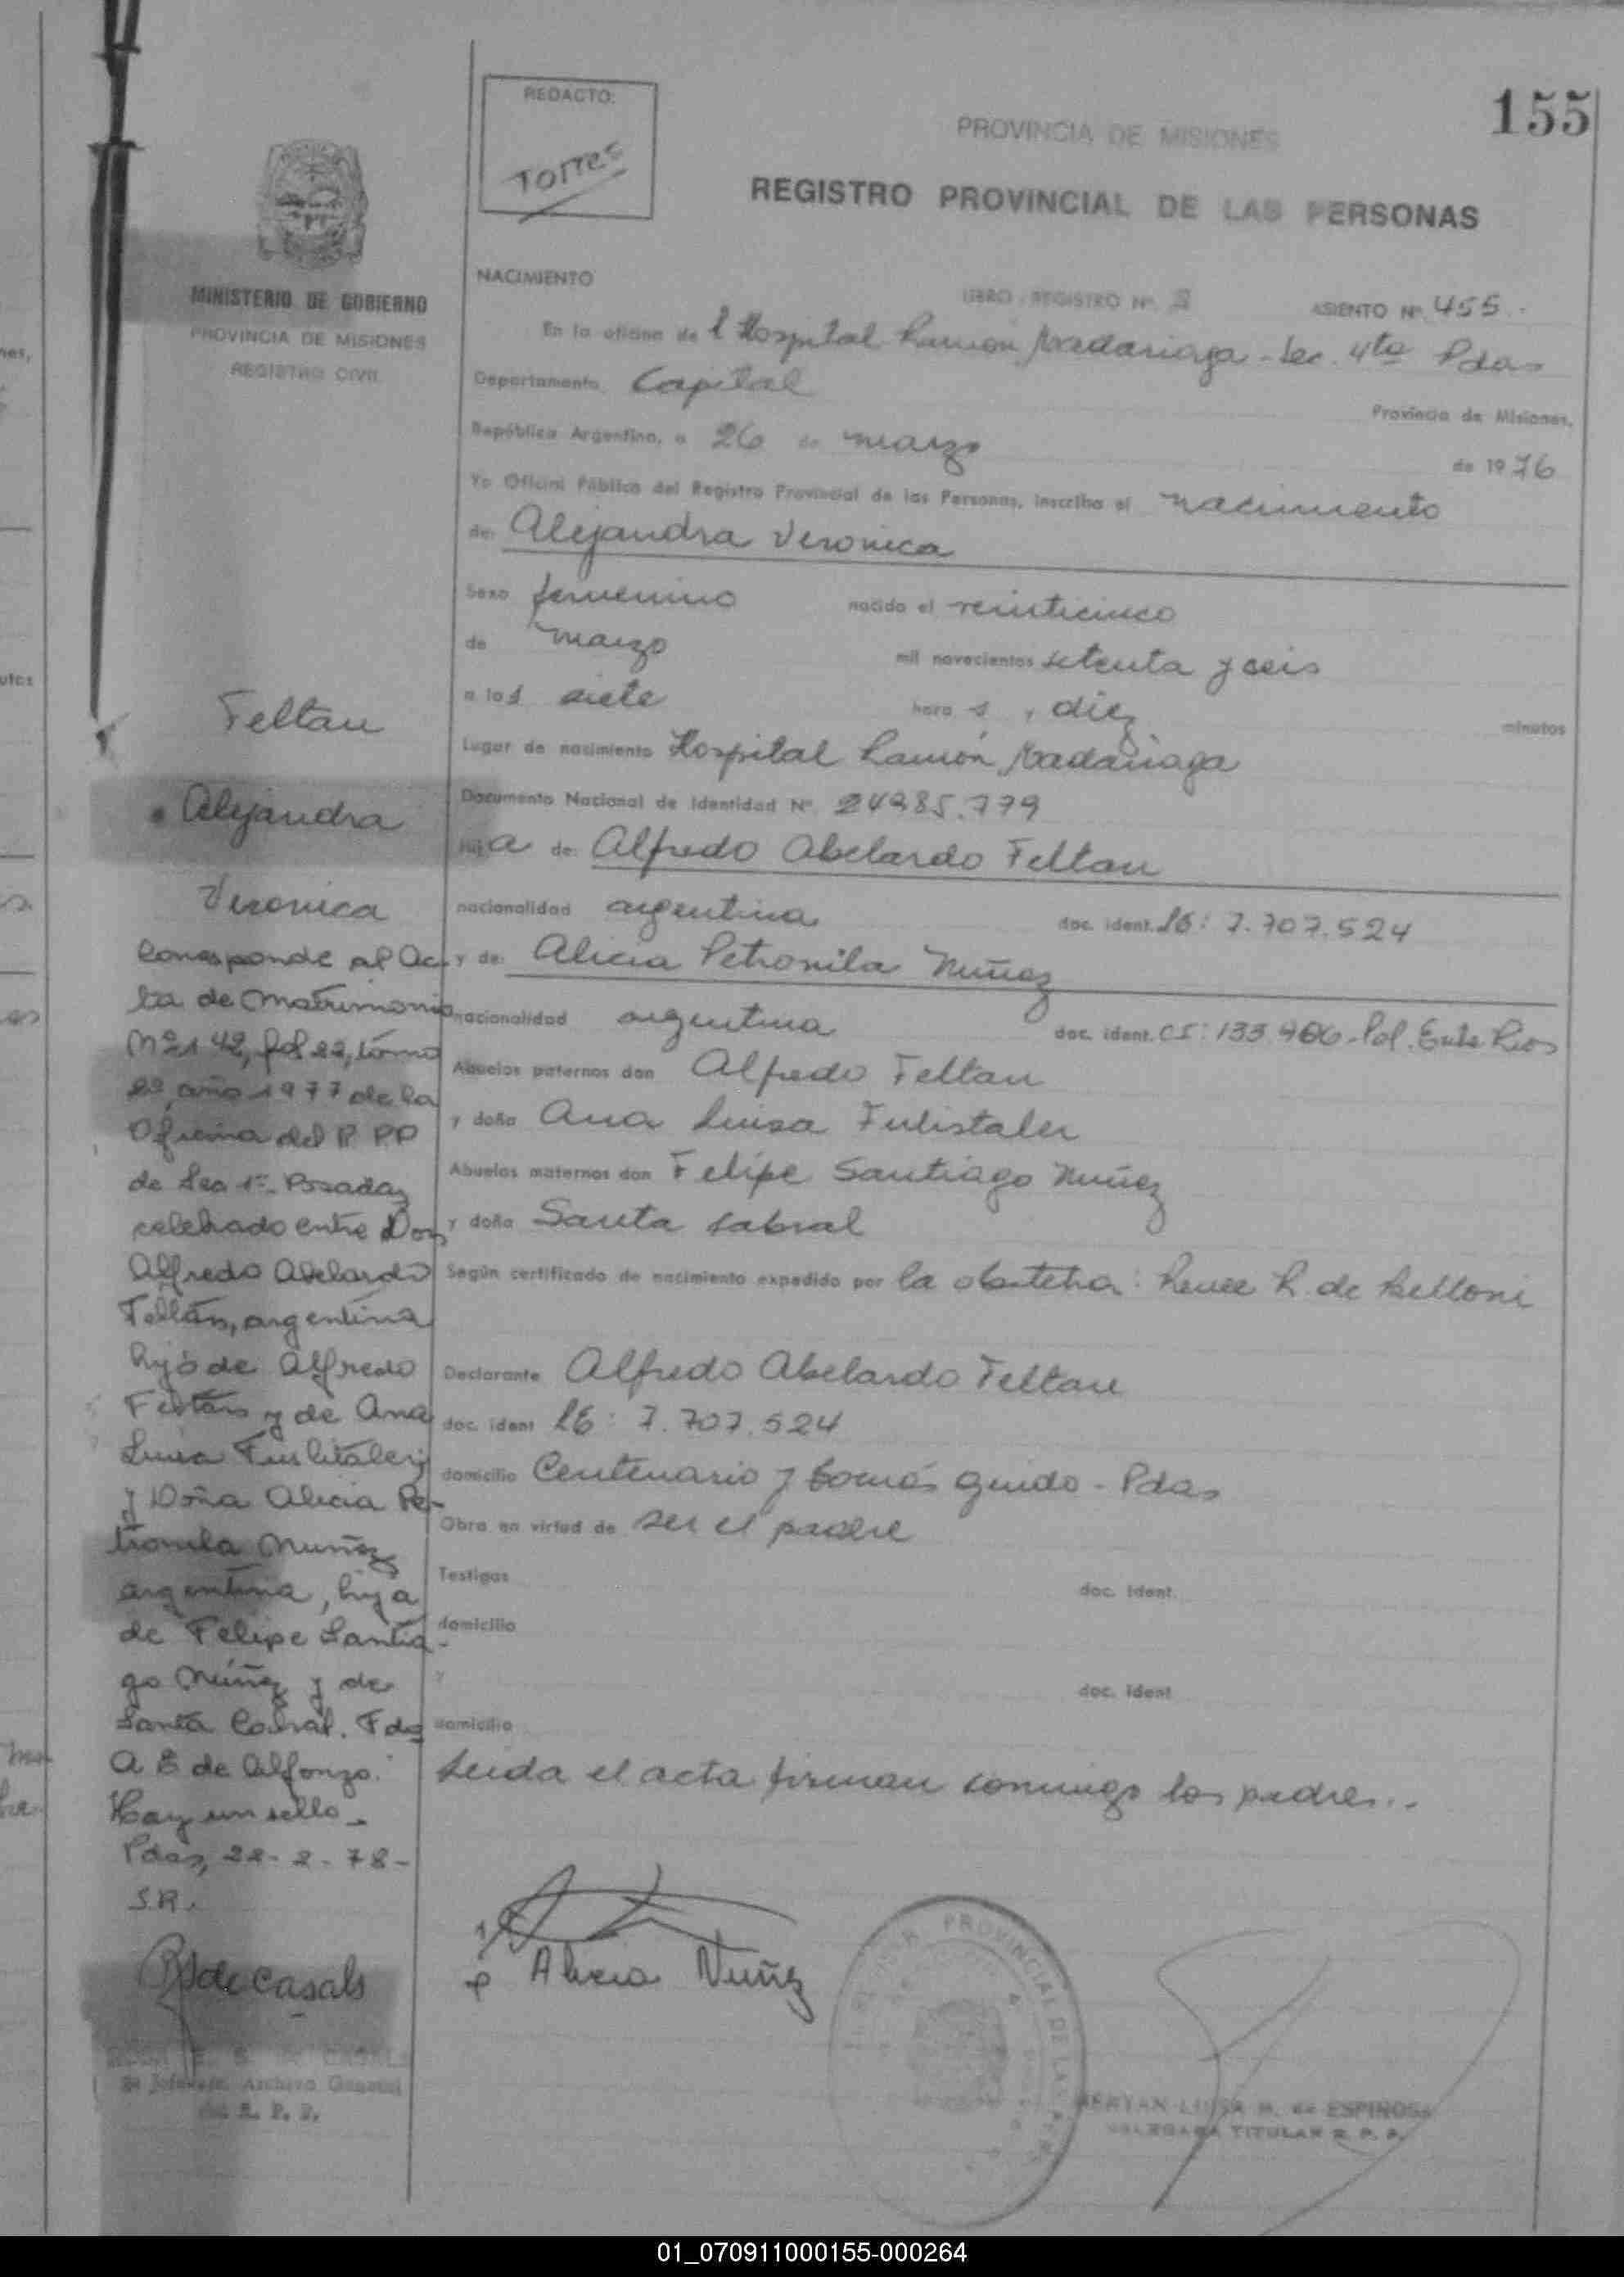 155
REDACTO:
Torres
PROVINCIA DE MISIONES
REGISTRO PROVINCIAL DE LAS PERSONAS
MINISTERIO DE GOBIERNO
PROVINCIA DE MISIONES
REGISTRO CIVIL
NACIMIENTO
LIBRO REGISTRO Nº ASIENTO Nº 455
En la oficina de l Hospital Ramón Madariaga - Sec. 4ta Pdas
Departamento Capital Provincia de Misiones,
República Argentina, a 26 de marzo de 1976
Yo Oficial Público del Registro Provincial de las Personas, inscribo el nacimiento
de: Alejandra Veronica
Sexo femenino nacido el veinticinco
de marzo mil novecientos setenta y seis
a las siete hora s y diez minutos
Lugar de nacimiento Hospital Ramón Madariaga
Documento Nacional de Identidad Nº
hija de: Alfredo Abelardo Feltan
nacionalidad argentina doc. ident. LE: 7.707.524
y de: Alicia Petronila Nuñez
nacionalidad argentina doc. ident. CI: Pol. Entre Rios
Abuelos paternos don Alfredo Feltan
y doña Ana Luisa Fulistaler
Abuelos maternos don Felipe Santiago Nuñez
y doña Santa Cabral
Según certificado de nacimiento expedido por la obstetra: Renee R. de Belloni
Declarante Alfredo Abelardo Feltan
doc. ident LE: 7.707.524
domicilio Centenario y Tomás Guido - Pdas
Obra en virtud de ser el padre
Testigos doc. ident.
domicilio
y doc. ident
domicilio
Leida el acta firman conmigo los padres..
Alicia Nuñez
PROVINCIAL DE LAS
LUISA M. de ESPINOSA
DELEGADA TITULAR R. P. P.
Feltan
Alejandra
Veronica
Corresponde al Ac-
ta de Matrimonio
Nº 142, fol 22, tomo
2º, año 1977 de la
Oficina del R PP
de Sec 1ª Posadas
celebrado entre Don
Alfredo Abelardo
Feltán, argentina
hijo de Alfredo
Feltán y de Ana
Luisa
y Doña Alicia Pe-
tronila Nuñez
argentina, hija
de Felipe Santia-
go Núñez y de
Santa Cabral. Fdo
A E de Alfonzo.
Hay un sello -
Pdas, 22-2-78-
S.R.
de Casals
Archivo General
del R. P. P.
01_070911000155-000264